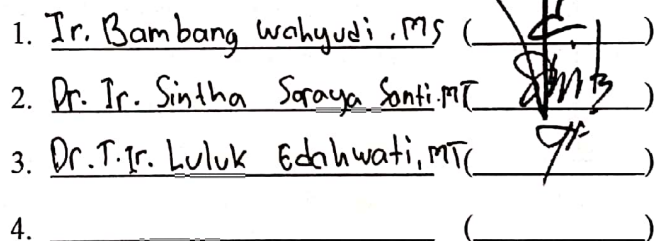 1. Ir. Bambang Wahyudi, MS (          )
2. Dr. Ir. Sintha Soraya Santi, MT (          )
3. Dr. T. Ir. Luluk Edahwati, MT (          )
4.                     (          )